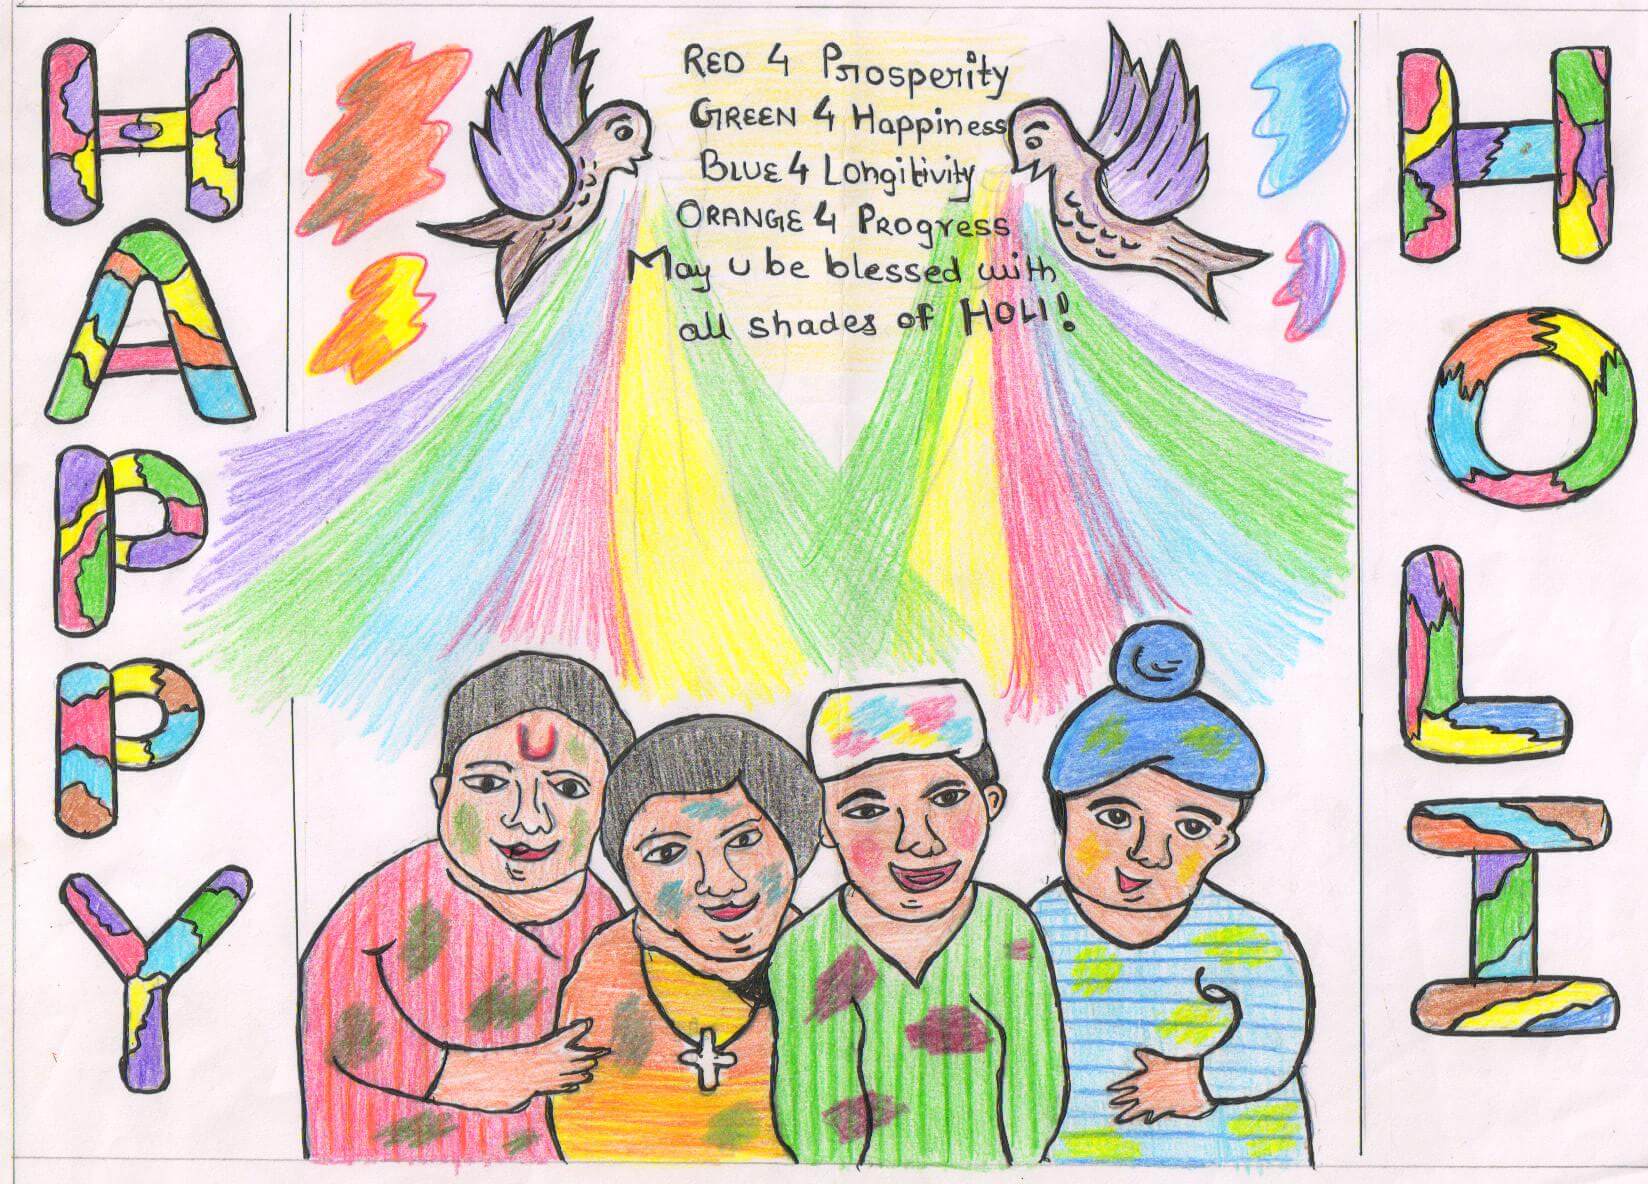 HAPPY
RED 4 Prosperity
GREEN 4 Happiness
BLUE 4 Longitivity
ORANGE 4 PROgress
May u be blessed with
all shades of HOLI!
HOLI